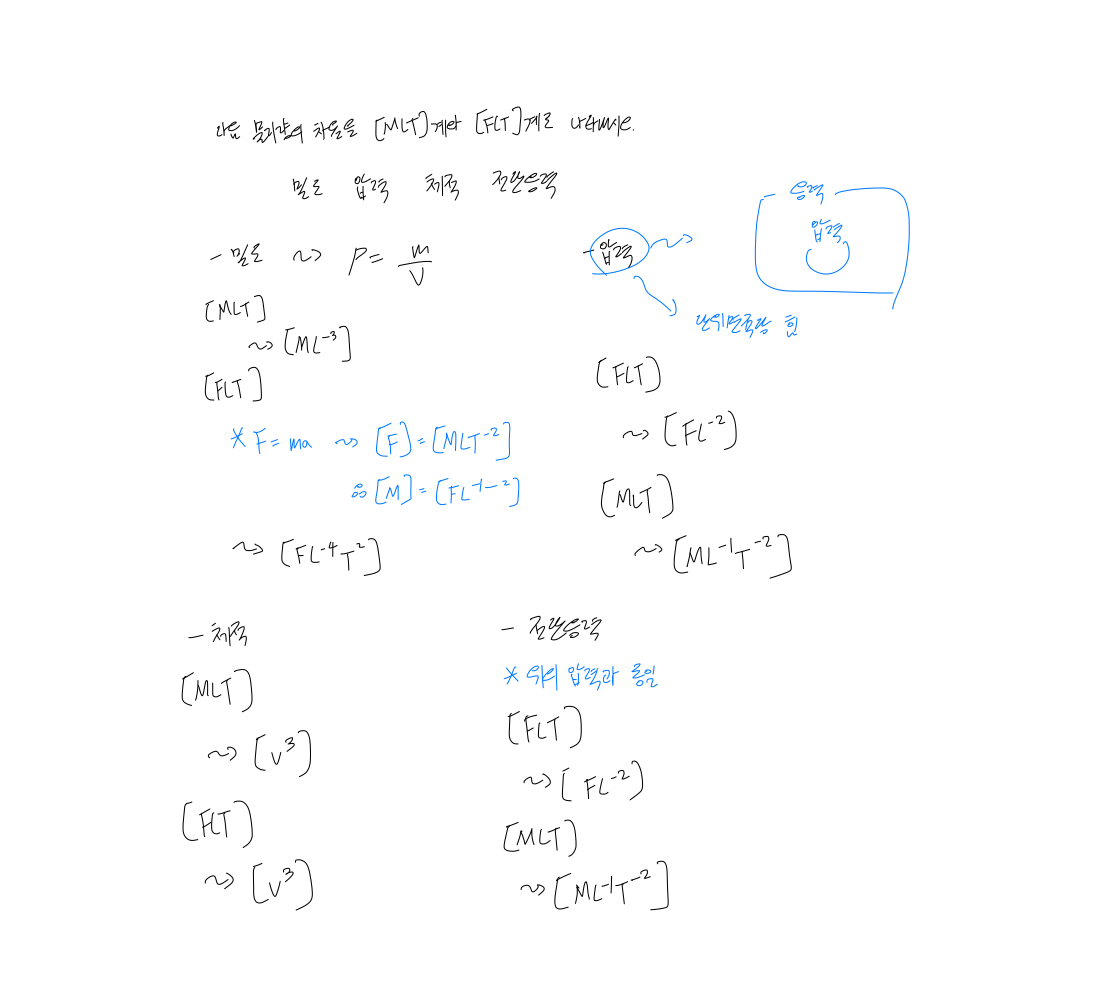 다음 물리량의 차원을 [MLT]계와 [FLT]계로 나타내시오.
밀도 압력 체적 전단응력
- 밀도 ~> ρ = m/V
[MLT]
~> [ML⁻³]
[FLT]
* F = ma ~> [F] = [MLT⁻²]
∴ [M] = [FL⁻¹⁻²]
~> [FL⁻⁴T²]
- 압력 ~>
응력
압력
단위면적당 힘
[FLT]
~> [FL⁻²]
[MLT]
~> [ML⁻¹T⁻²]
- 체적
[MLT]
~> [V³]
[FLT]
~> [V³]
- 전단응력
* 위의 압력과 동일
[FLT]
~> [FL⁻²]
[MLT]
~> [ML⁻¹T⁻²]